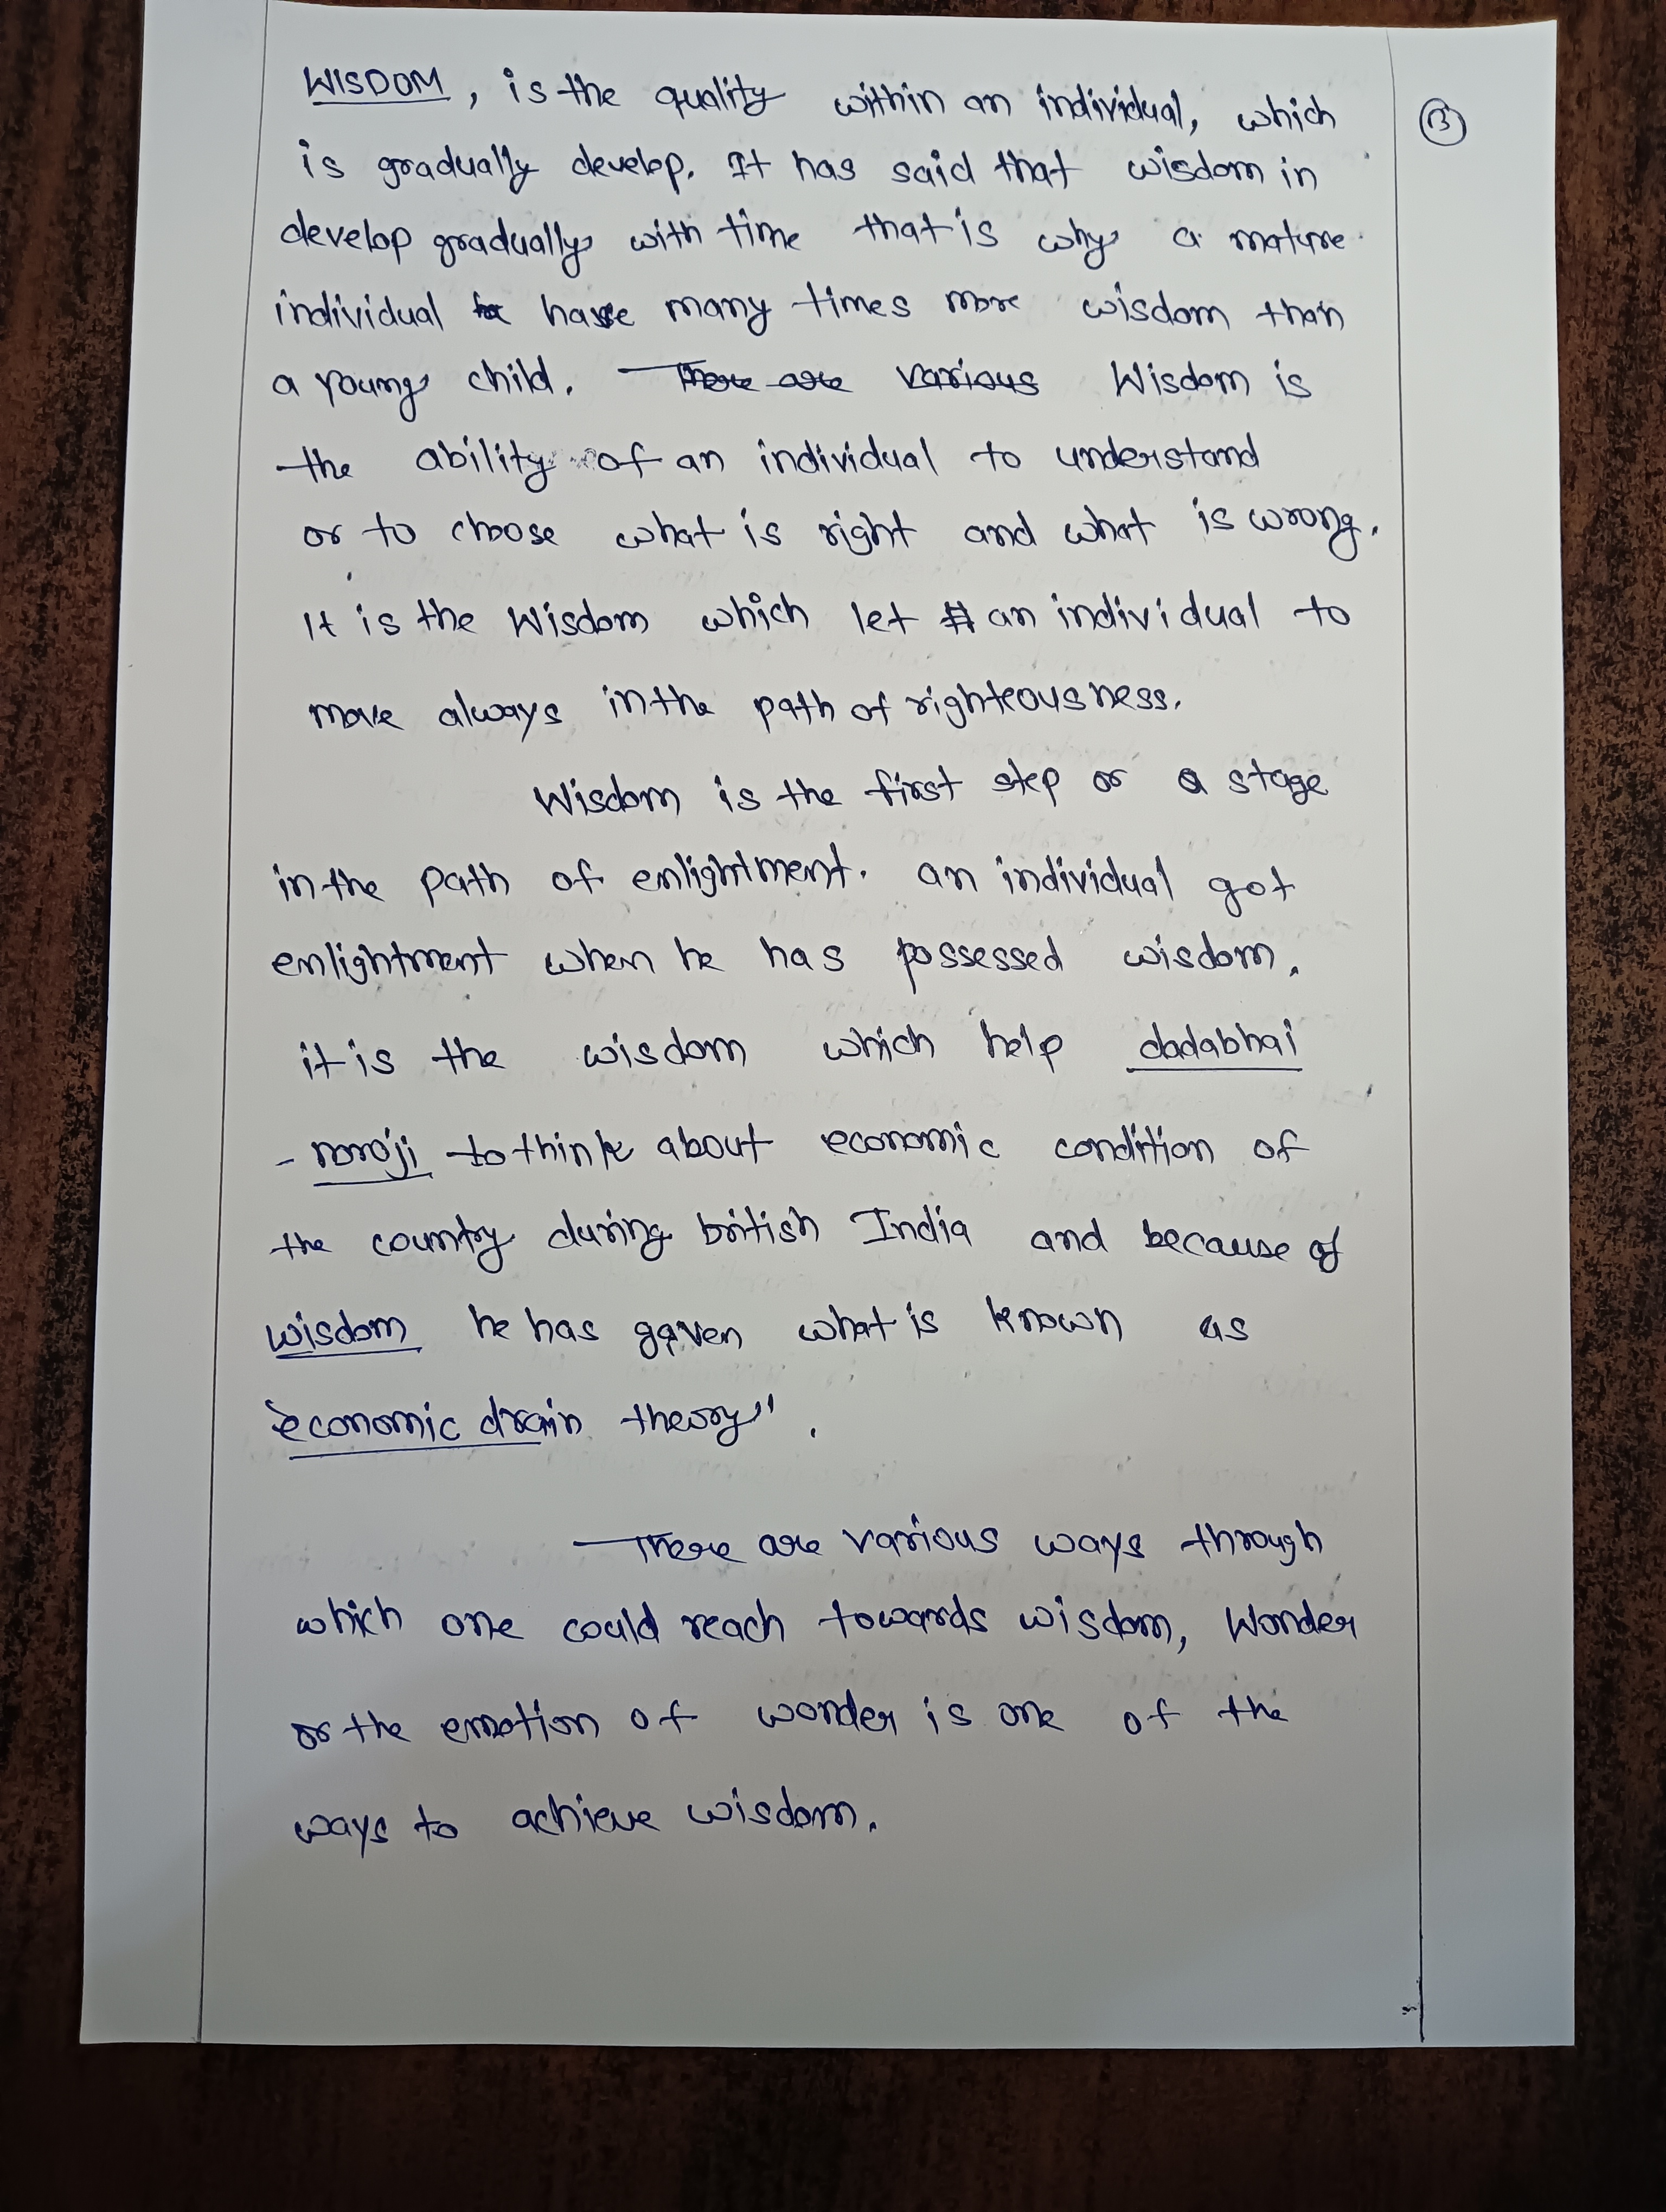 WISDOM, is the quality within an individual, which
(13)
is gradually develop. It has said that wisdom in
develop gradually with time that is why a mature
individual have many times more wisdom than
a young child. There are various Wisdom is
the ability of an individual to understand
or to choose what is right and what is wrong.
It is the Wisdom which let an individual to
move always in the path of righteousness.
Wisdom is the first step or a stage
in the path of enlightment. an individual got
enlightment when he has possessed wisdom.
it is the wisdom which help dadabhai
- noroji to think about economic condition of
the country during british India and because of
wisdom he has given what is known as
"economic drain theory".
There are various ways through
which one could reach towards wisdom, Wonder
or the emotion of wonder is one of the
ways to achieve wisdom.